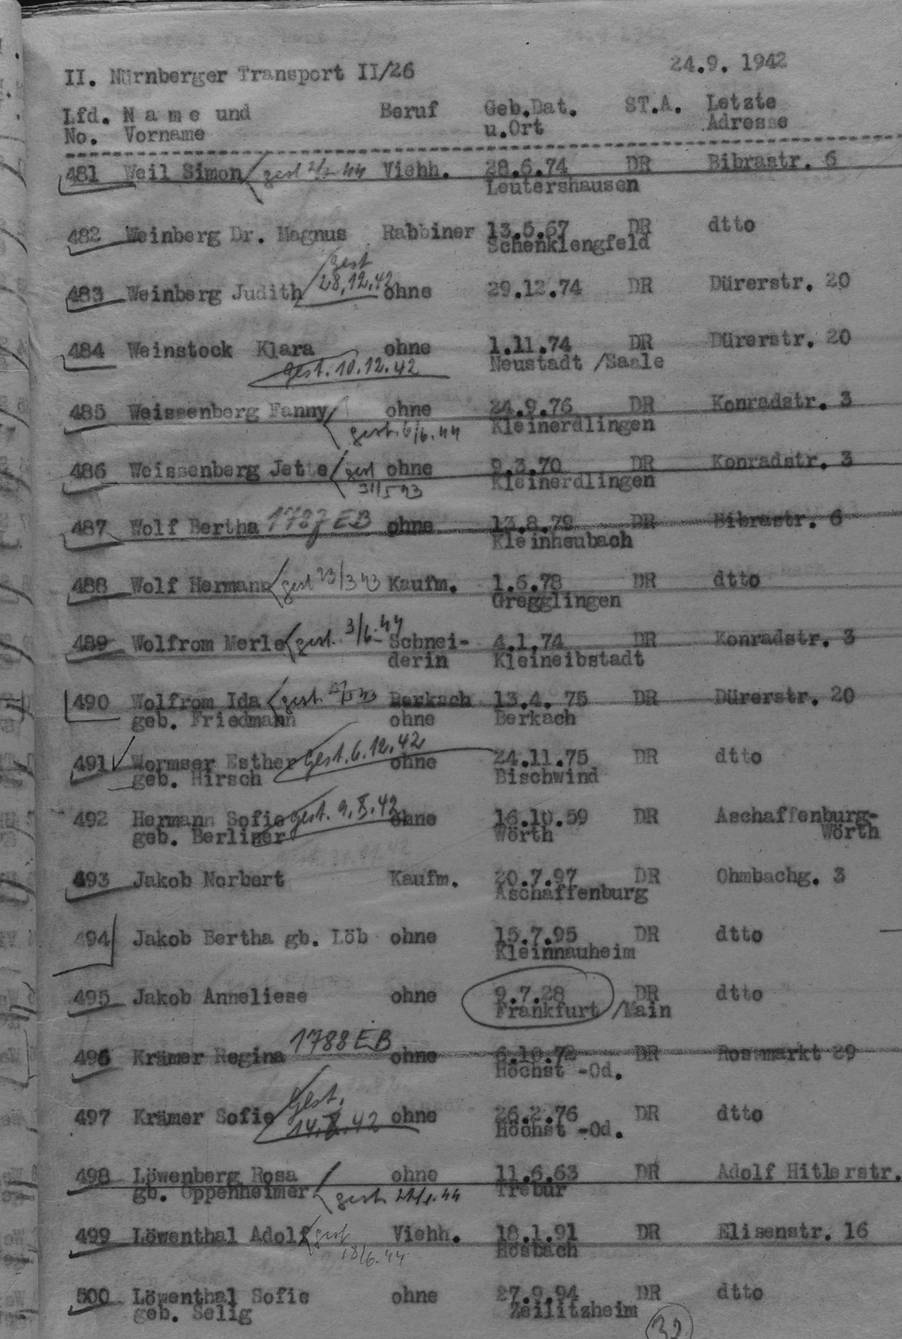 II. Nürnberger Transport II/26 24.9. 1942
Lfd. N a m e und Beruf Geb.Dat. ST.A. Letzte
No. Vorname u.Ort Adresse
481 Weil Simon gest 44 Viehh. 28.6.74 DR Bibrastr. 6
Leutershausen
482 Weinberg Dr. Magnus Rabbiner 13.5.67 DR dtto
Schenklengfeld
gest
28.12.42
483 Weinberg Judith ohne 29.12.74 DR Dürerstr. 20
484 Weinstock Klara ohne 1.11.74 DR Dürerstr. 20
gest. 10.12.42 Neustadt /Saale
485 Weissenberg Fanny ohne 24.9.76 DR Konradstr. 3
gest. 6/6.44 Kleinerdlingen
486 Weissenberg Jette gest ohne 9.3.70 DR Konradstr. 3
31/5 43 Kleinerdlingen
487 Wolf Bertha 1787 EB ohne 13.8.79 DR Bibrastr. 6
Kleinheubach
488 Wolf Hermann gest 23/3 43 Kaufm. 1.6.78 DR dtto
Gregglingen
489 Wolfrom Merle gest. 3/6-44 Schnei- 4.1.74 DR Konradstr. 3
derin Kleineibstadt
490 Wolfrom Ida gest. 43 Berkach 13.4. 75 DR Dürerstr. 20
geb. Friedmann ohne Berkach
491 Wormser Esther gest. 6.12.42 ohne 24.11.75 DR dtto
geb. Hirsch Bischwind
492 Hermann Sofie gest. 9.X.42 ohne 16.10.59 DR Aschaffenburg-
geb. Berliner Wörth Wörth
493 Jakob Norbert Kaufm. 20.7.97 DR Ohmbachg. 3
Aschaffenburg
494 Jakob Bertha gb. Löb ohne 15.7.95 DR dtto
Kleinnauheim
495 Jakob Anneliese ohne 9.7.28 DR dtto
Frankfurt /Main
496 Krämer Regina 1788 EB ohne 6.10.72 DR Rossmarkt 29
Höchst -Od.
497 Krämer Sofie gest. ohne 26.2.76 DR dtto
14.X.42 Höchst -Od.
498 Löwenberg Rosa ohne 11.6.63 DR Adolf Hitlerstr.
gb. Oppenheimer gest. 44 Trebur
499 Löwenthal Adolf gest Viehh. 18.1.91 DR Elisenstr. 16
18/6.44 Rösbach
500 Löwenthal Sofie ohne 27.9.94 DR dtto
geb. Selig Zeilitzheim
32